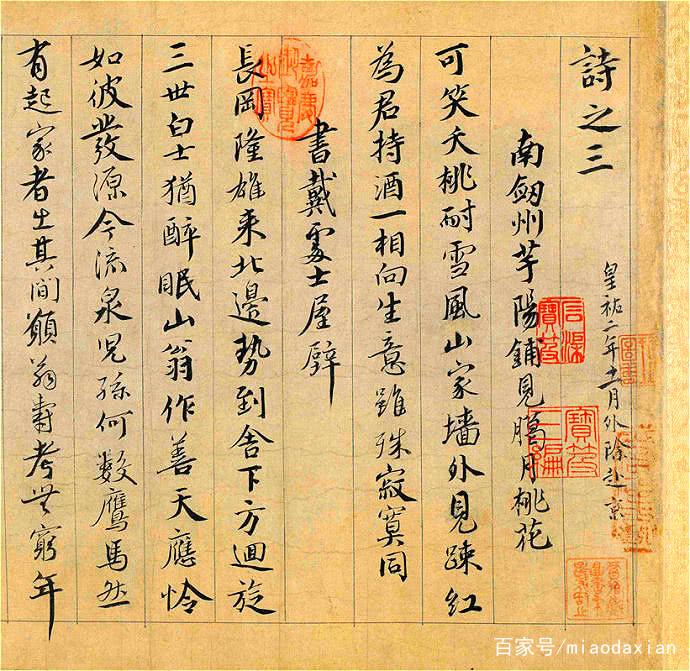 詩之三
皇祐二年十一月外除赴京
南劒州芋陽鋪見臘月桃花
可笑夭桃耐雪風山家墻外見踈紅
為君持酒一相向生意雖殊寂寞同
書戴處士屋壁
長岡隆雄來北邊勢到舍下方迴旋
三世白士猶醉眠山翁作善天應憐
如彼發源今流泉兒孫何數鷹馬然
有起家者出其間願翁壽考無窮年
嘉慶御覽之寶
石渠寶笈
寶笈三編
百家号/miaodaxian